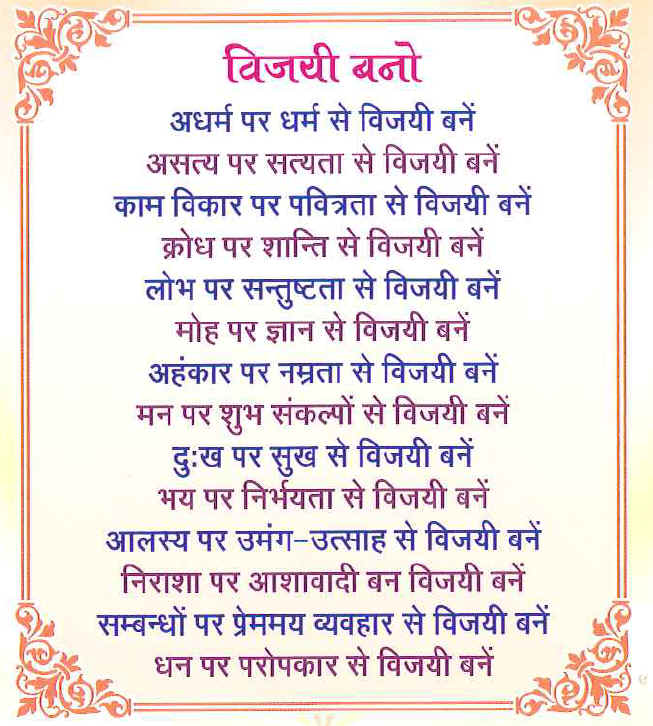 विजयी बनो
अधर्म पर धर्म से विजयी बनें
असत्य पर सत्यता से विजयी बनें
काम विकार पर पवित्रता से विजयी बनें
क्रोध पर शान्ति से विजयी बनें
लोभ पर सन्तुष्टता से विजयी बनें
मोह पर ज्ञान से विजयी बनें
अहंकार पर नम्रता से विजयी बनें
मन पर शुभ संकल्पों से विजयी बनें
दुःख पर सुख से विजयी बनें
भय पर निर्भयता से विजयी बनें
आलस्य पर उमंग-उत्साह से विजयी बनें
निराशा पर आशावादी बन विजयी बनें
सम्बन्धों पर प्रेममय व्यवहार से विजयी बनें
धन पर परोपकार से विजयी बनें